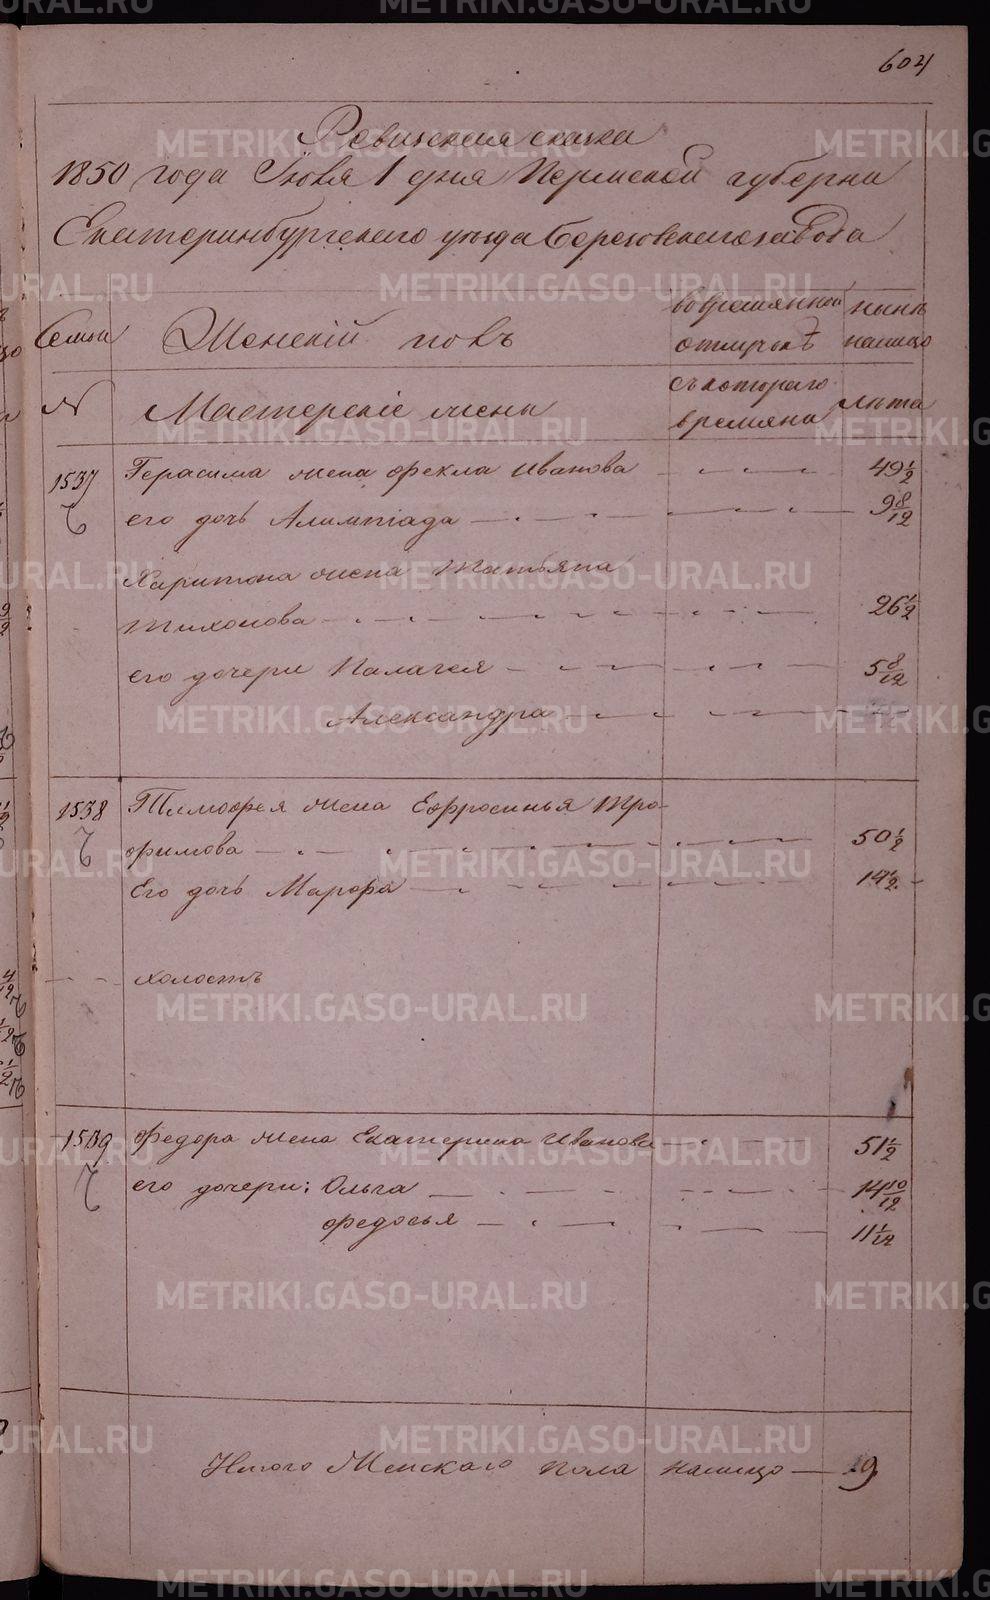 604
Ревизская сказка
1850 года Июня 1 дня Пермской губерни
Екатеринбургского уезда Березовского завода
Семьи
Женскій полъ
вовременной отлучкѣ
нынѣ налицо
№
Мастерскіе жены
съ котораго времяни
лѣта
1537 Герасима жена Фекла Иванова 49 1/2
его дочь Алимпіада 9 8/12
Харитона жена Татьяна
Тихонова 26 1/2
его дочери Палагея 5 8/12
Александра
1538 Тимофея жена Ефросинья Тро-
фимова 50 1/2
Его дочь Марфа 14 1/2
холостъ
1539 Федора жена Екатерина Иванова 51 1/2
его дочери: Ольга 14 10/12
Федосья 11 1/12
Итого Женскаго пола налицо 9
METRIKI.GASO-URAL.RU